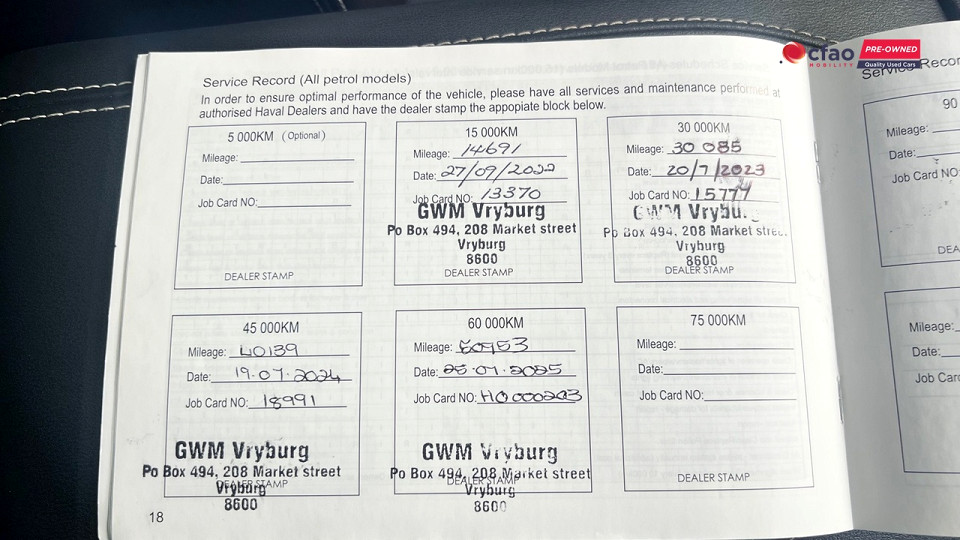 cfao
MOBILITY
PRE-OWNED
Quality Used Cars
Service Record (All petrol models)
In order to ensure optimal performance of the vehicle, please have all services and maintenance performed at
authorised Haval Dealers and have the dealer stamp the appopiate block below.
5 000KM (Optional)
Mileage:
Date:
Job Card NO:
DEALER STAMP
15 000KM
Mileage: 14691
Date: 27/09/2022
Job Card NO: 13370
GWM Vryburg
Po Box 494, 208 Market street
Vryburg
8600
DEALER STAMP
30 000KM
Mileage: 30 085
Date: 20/7/2023
Job Card NO: 15777
GWM Vrybu
Po Box 494, 208 Market stree
Vryburg
8600
DEALER STAMP
45 000KM
Mileage: 40139
Date: 19.07.2024
Job Card NO: 18991
GWM Vryburg
Po Box 494, 208 Market street
DEALER STAMP
Vryburg
8600
60 000KM
Mileage: 50953
Date: 25.07.2025
Job Card NO: HO000203
GWM Vryburg
Po Box 494, 208 Market street
DEALER STAMP
Vryburg
8600
75 000KM
Mileage:
Date:
Job Card NO:
DEALER STAMP
18
Service Recor
90
Mileage:
Date:
Job Card NO:
DEA
Mileage:
Date:
Job Card